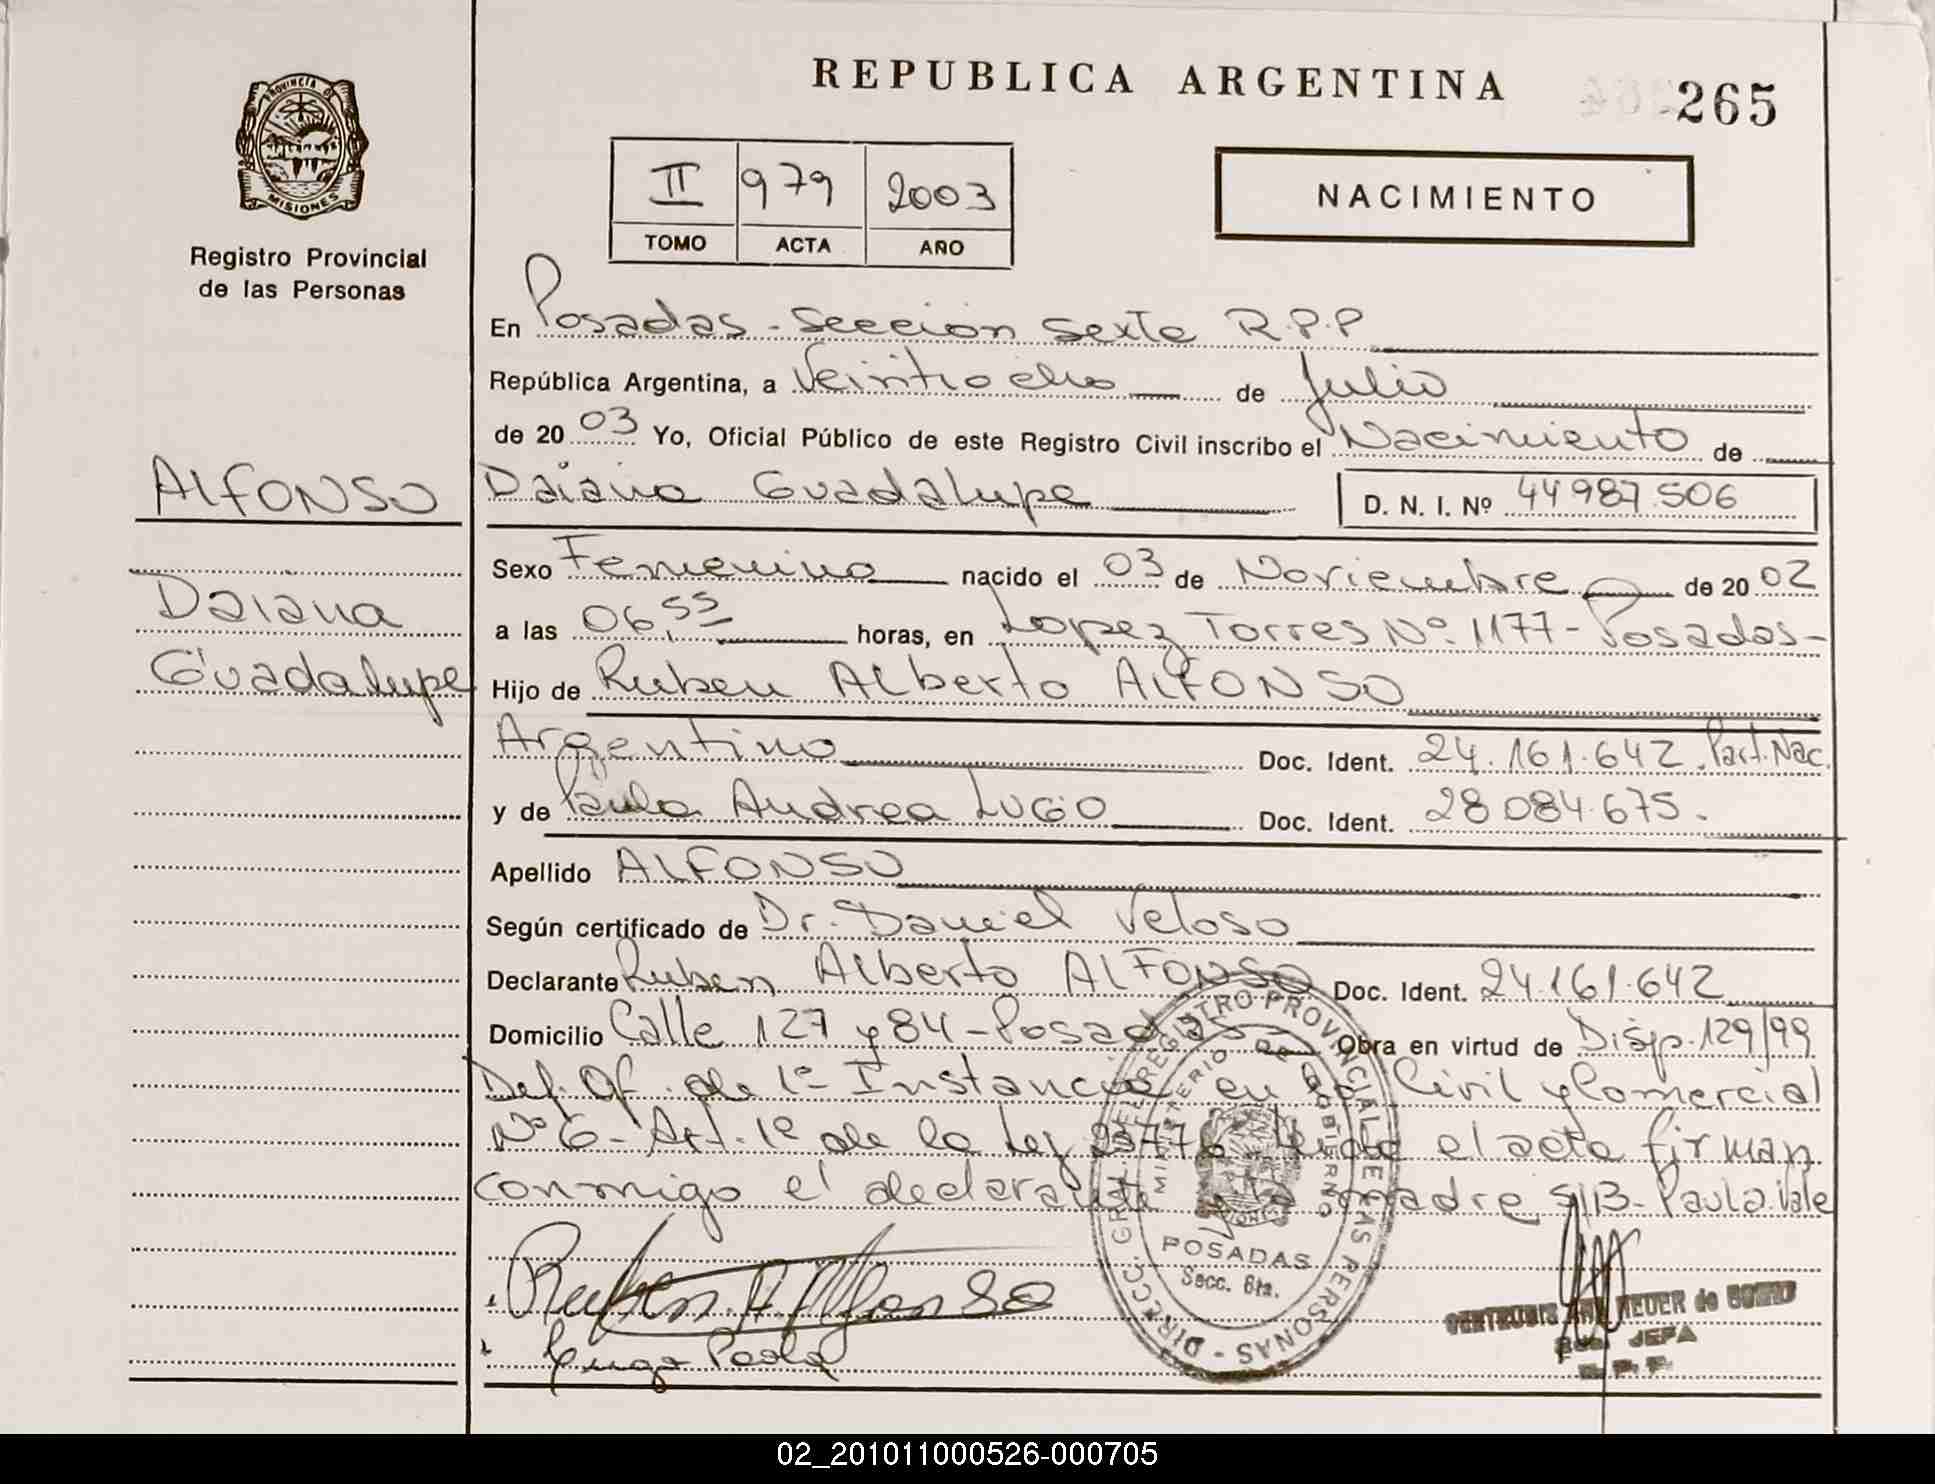 REPUBLICA ARGENTINA
265
PROVINCIA DE
MISIONES
Registro Provincial
de las Personas
II 979 2003
TOMO ACTA AÑO
NACIMIENTO
En Posadas - Sección Sexta R.P.P
República Argentina, a Veintiocho de Julio
de 2003 Yo, Oficial Público de este Registro Civil inscribo el Nacimiento de
ALFONSO
Daiana Guadalupe D. N. I. Nº 44987.506
Sexo Femenino nacido el 03 de Noviembre de 2002
Daiana
a las 06,55 horas, en Lopez Torres Nº 1177 - Posadas -
Guadalupe
Hijo de Ruben Alberto ALFONSO
Argentino Doc. Ident. 24.161.642. Part. Nac.
y de Paula Andrea LUGO Doc. Ident. 28.084.675.
Apellido ALFONSO
Según certificado de Dr. Daniel Veloso
Declarante Ruben Alberto ALFONSO Doc. Ident. 24.161.642
Domicilio Calle 127 y 84 - Posadas Obra en virtud de Disp. 129/99
Def. Of. de 1º Instancia en lo Civil y Comercial
Nº 6 - Art. 1º de la Ley Leída el acta firman
conmigo el declarante y la madre S/B - Paula. Vale
Ruben A. Alfonso
DIRECC. GRAL. DEL REGISTRO PROVINCIAL DE LAS PERSONAS
MINISTERIO DE GOBIERNO
POSADAS
Secc. 6ta.
JEFA
R.P.P.
02_201011000526-000705